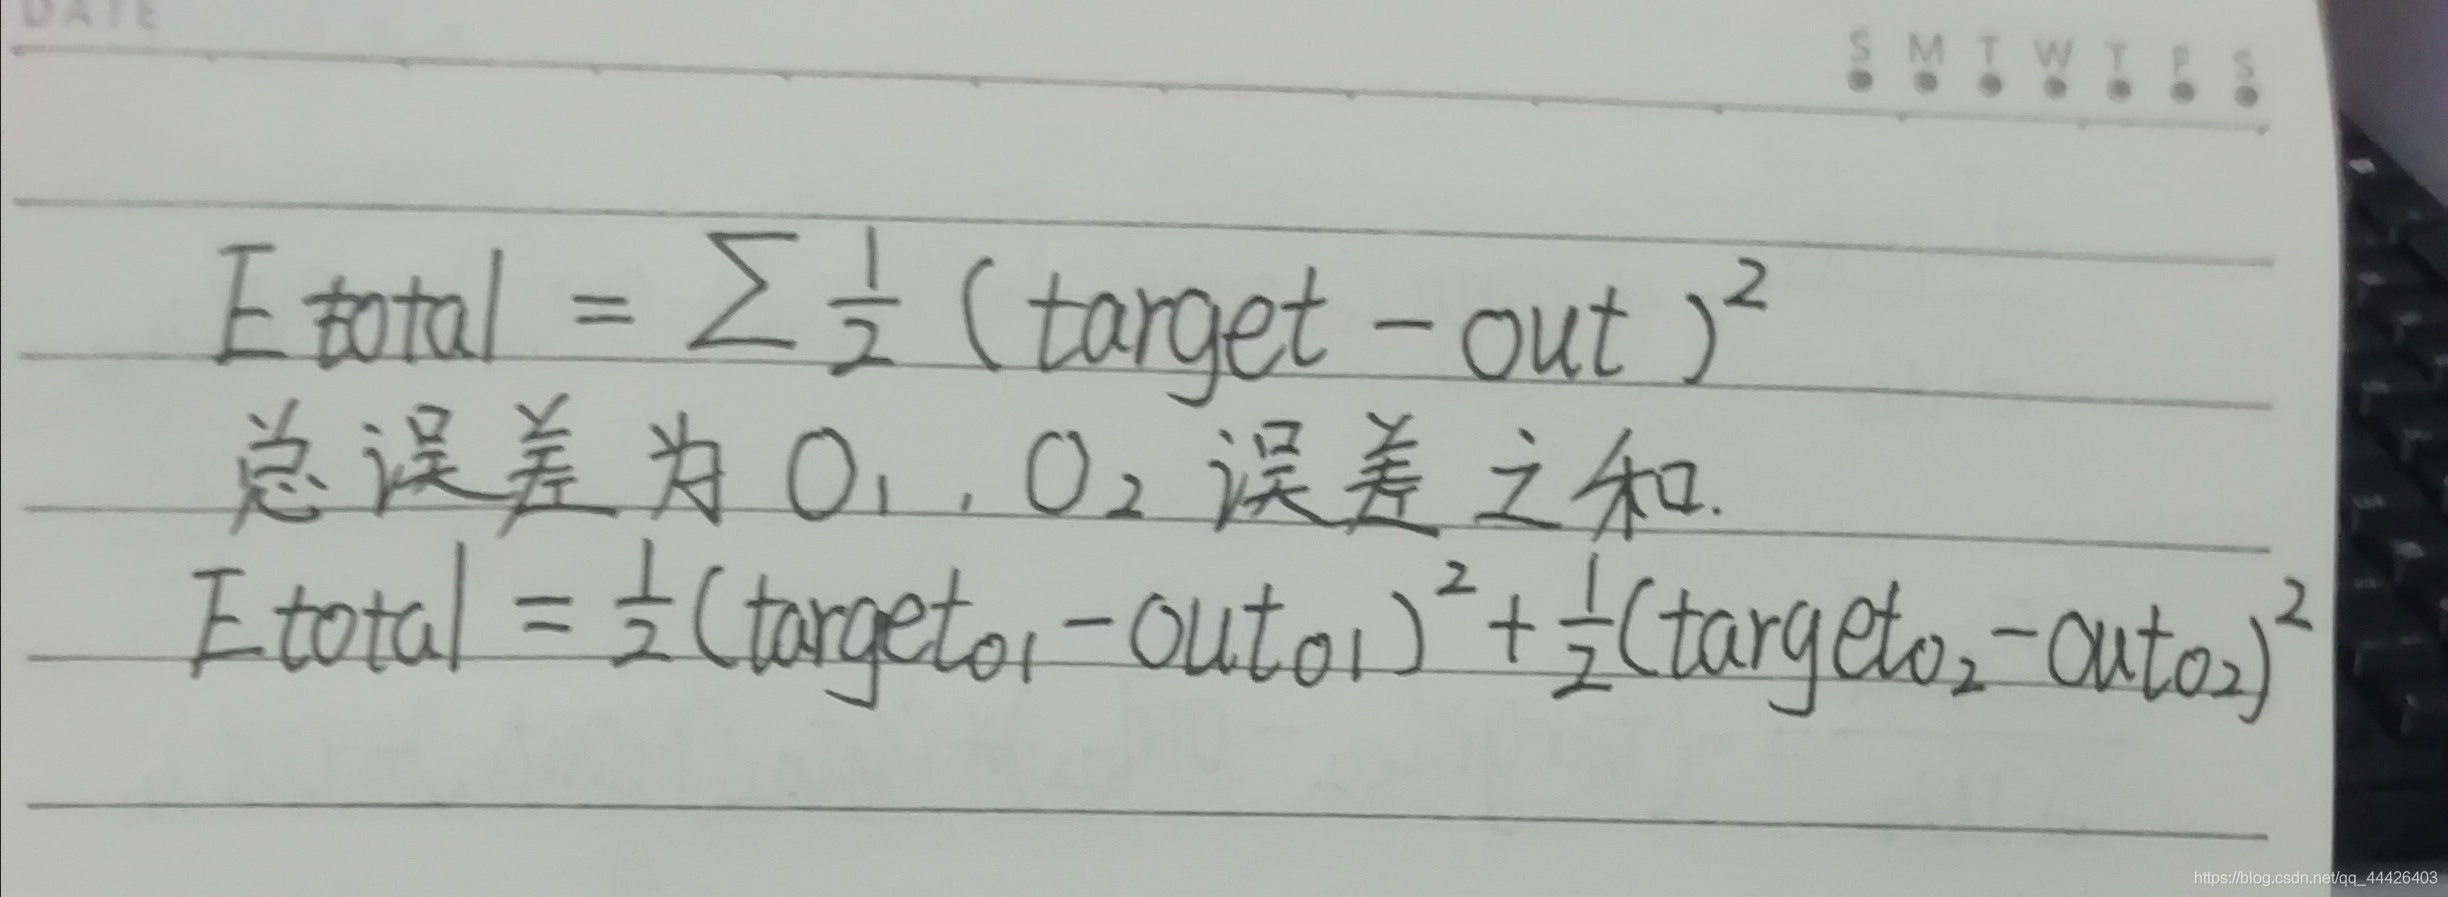 DATE
S M T W T F S
Etotal = Σ 1/2 (target - out)²
总误差为O₁,O₂误差之和.
Etotal = 1/2(target_o1 - out_o1)² + 1/2(target_o2 - out_o2)²
https://blog.csdn.net/qq_44426403